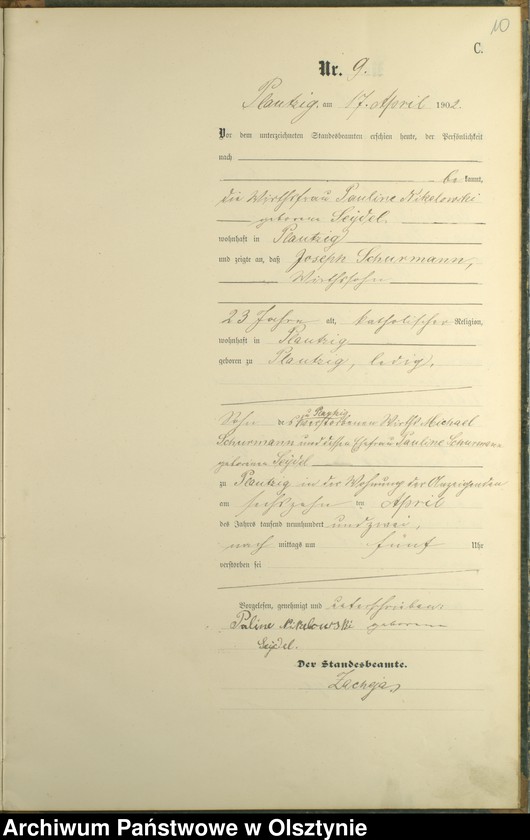 10
C.
Nr. 9.
Plautzig, am 17. April 1902.
Vor dem unterzeichneten Standesbeamten erschien heute, der Persönlichkeit
nach
be kannt,
die Wirthsfrau Pauline Nikelowski
geborene Seydel
wohnhaft in Plautzig
und zeigte an, daß Joseph Schurmann,
Wirthssohn
23 Jahre alt, katholischer Religion,
wohnhaft in Plautzig
geboren zu Plautzig, ledig,
zu Plautzig
Sohn des verstorbenen Wirths Michael
Schurmann und dessen Ehefrau Pauline Schurmann
geborenen Seydel
zu Plautzig in der Wohnung der Anzeigenden
am sechszehn ten April
des Jahrs tausend neunhundert und zwei,
nach mittags um fünf Uhr
verstorben sei
Vorgelesen, genehmigt und unterschrieben:
Paline Nikelowski geborene
Seydel.
Der Standesbeamte.
Archiwum Państwowe w Olsztynie